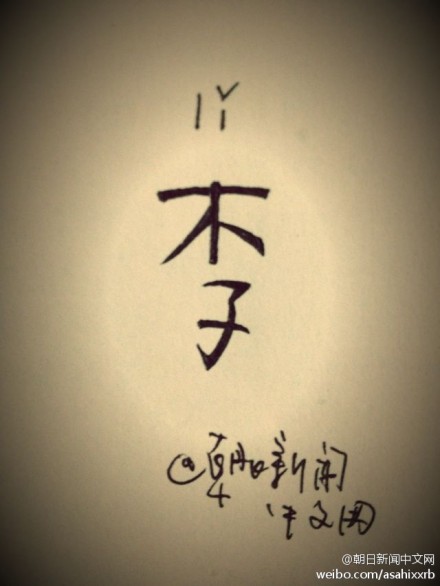 lǐ
李
@朝日新闻
中文网
@朝日新闻中文网
weibo.com/asahixxrb